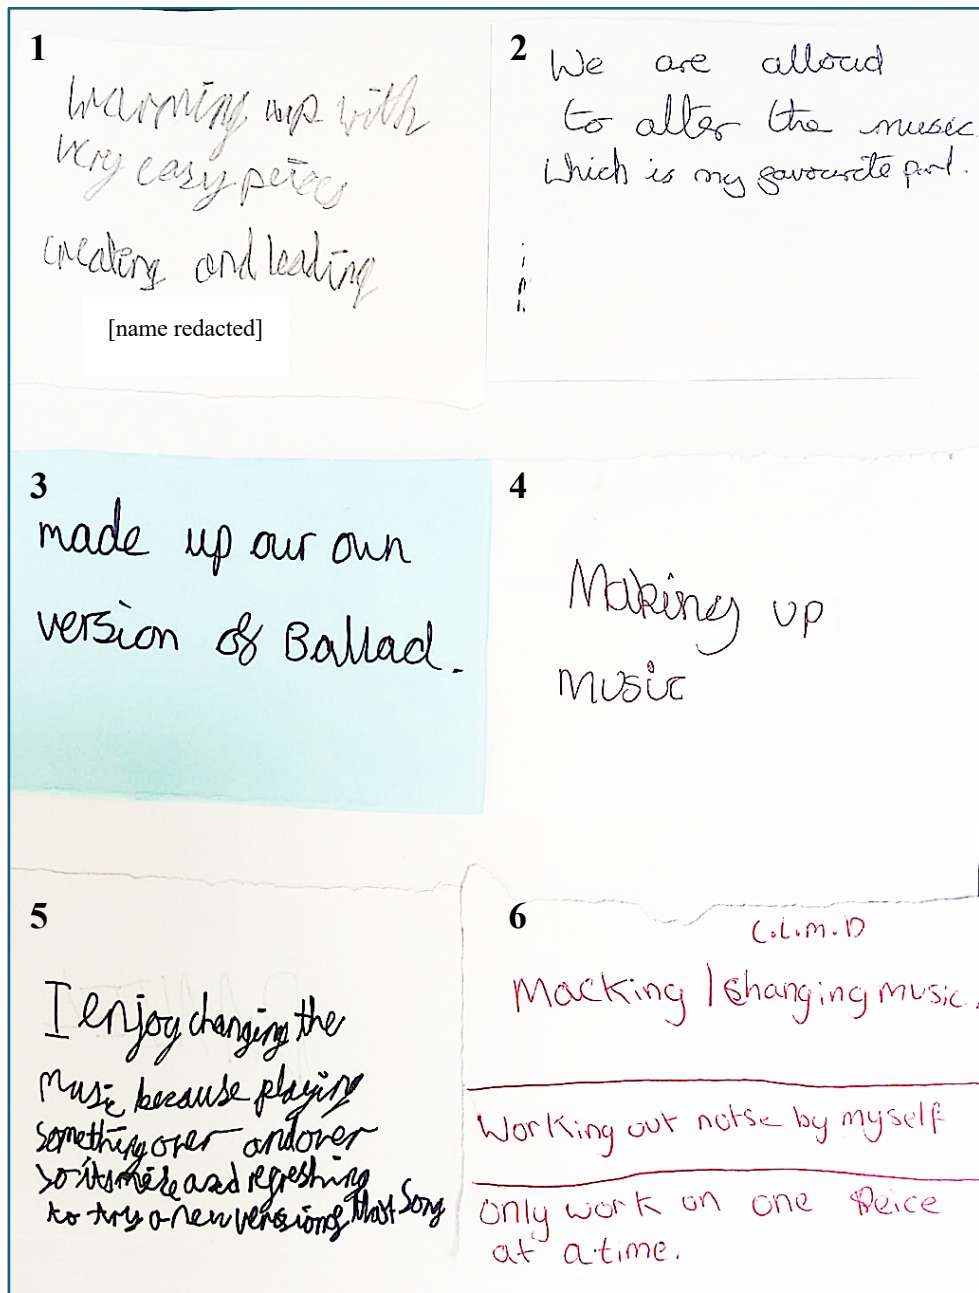 1
Warming up with
very easy peices
creating and leading
[name redacted]
2
We are alloud
to alter the music
which is my favourite part.
3
made up our own
version of Ballad.
4
Making up
music
5
I enjoy changing the
music because playing
something over and over
so its nice and refreshing
to try a new version of that song
6
C.L.M.D
Macking / changing music.
Working out notse by myself
only work on one Peice
at a time.